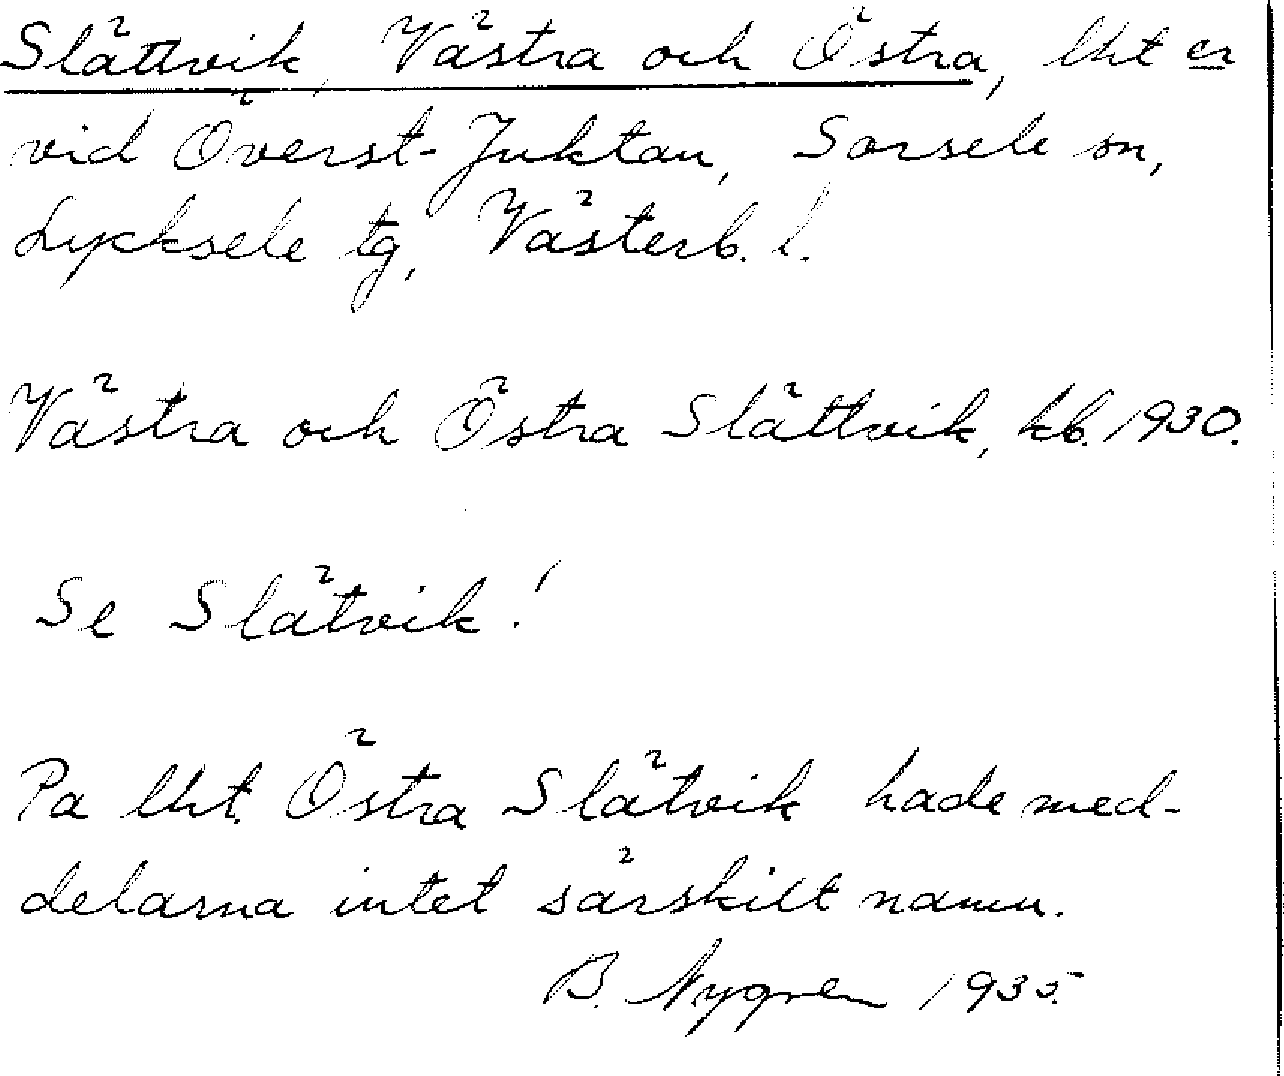 Slättvik, Västra och Östra, lht er
vid Överst-Juktan, Sorsele sn,
Lycksele tg, Västerb. l.
Västra och Östra Slättvik, kb. 1930.
Se Slätvik!
Pa lht. Östra Slätvik hade med-
delarna intet särskilt namn.
B. Nygren 1935.